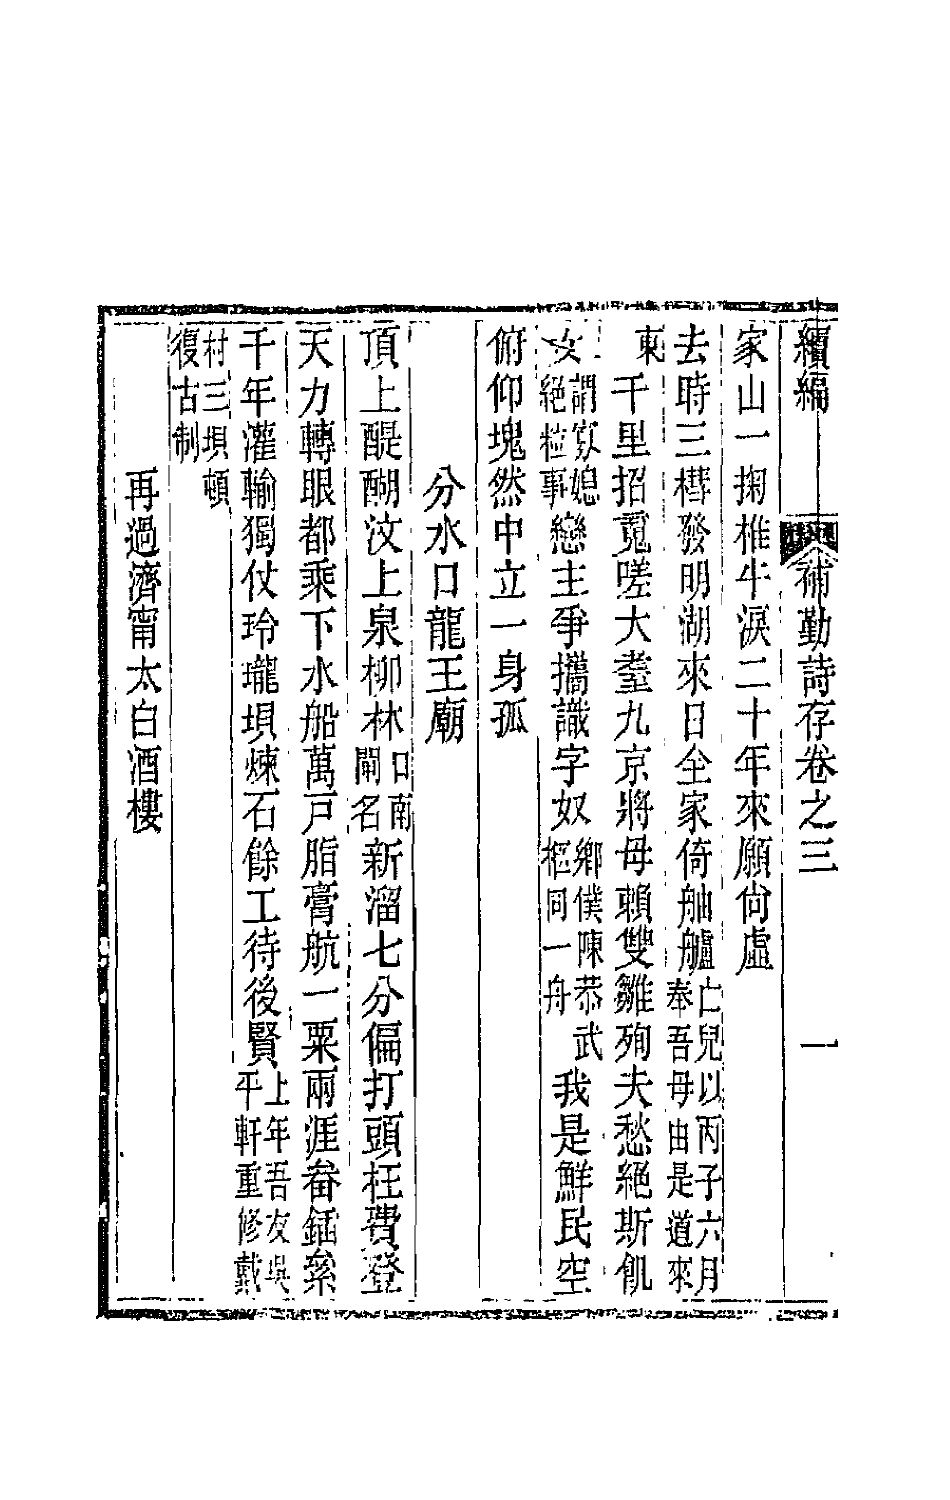 續編 補勤詩存卷之三 一
家山一掬椎牛淚二十年來願尙虛
去時三槥發明湖來日全家倚舳艫亡兒以丙子六月奉吾母由是道來
東千里招䰟嗟大耋九京將母賴雙雛殉夫愁絕斯飢
女謂寡媳絕粒事戀主爭攜識字奴鄉僕陳恭武柩同一舟我是鮮民空
俯仰塊然中立一身孤
分水口龍王廟
頂上醍醐汶上泉柳林口南閘名新溜七分偏打頭枉費登
天力轉眼都乘下水船萬戸脂膏航一粟兩涯畚鍤縈
千年灌輸獨仗玲瓏垻煉石餘工待後賢上年吾友吳平軒重修戴
村三垻頓復古制
再過濟甯太白酒樓